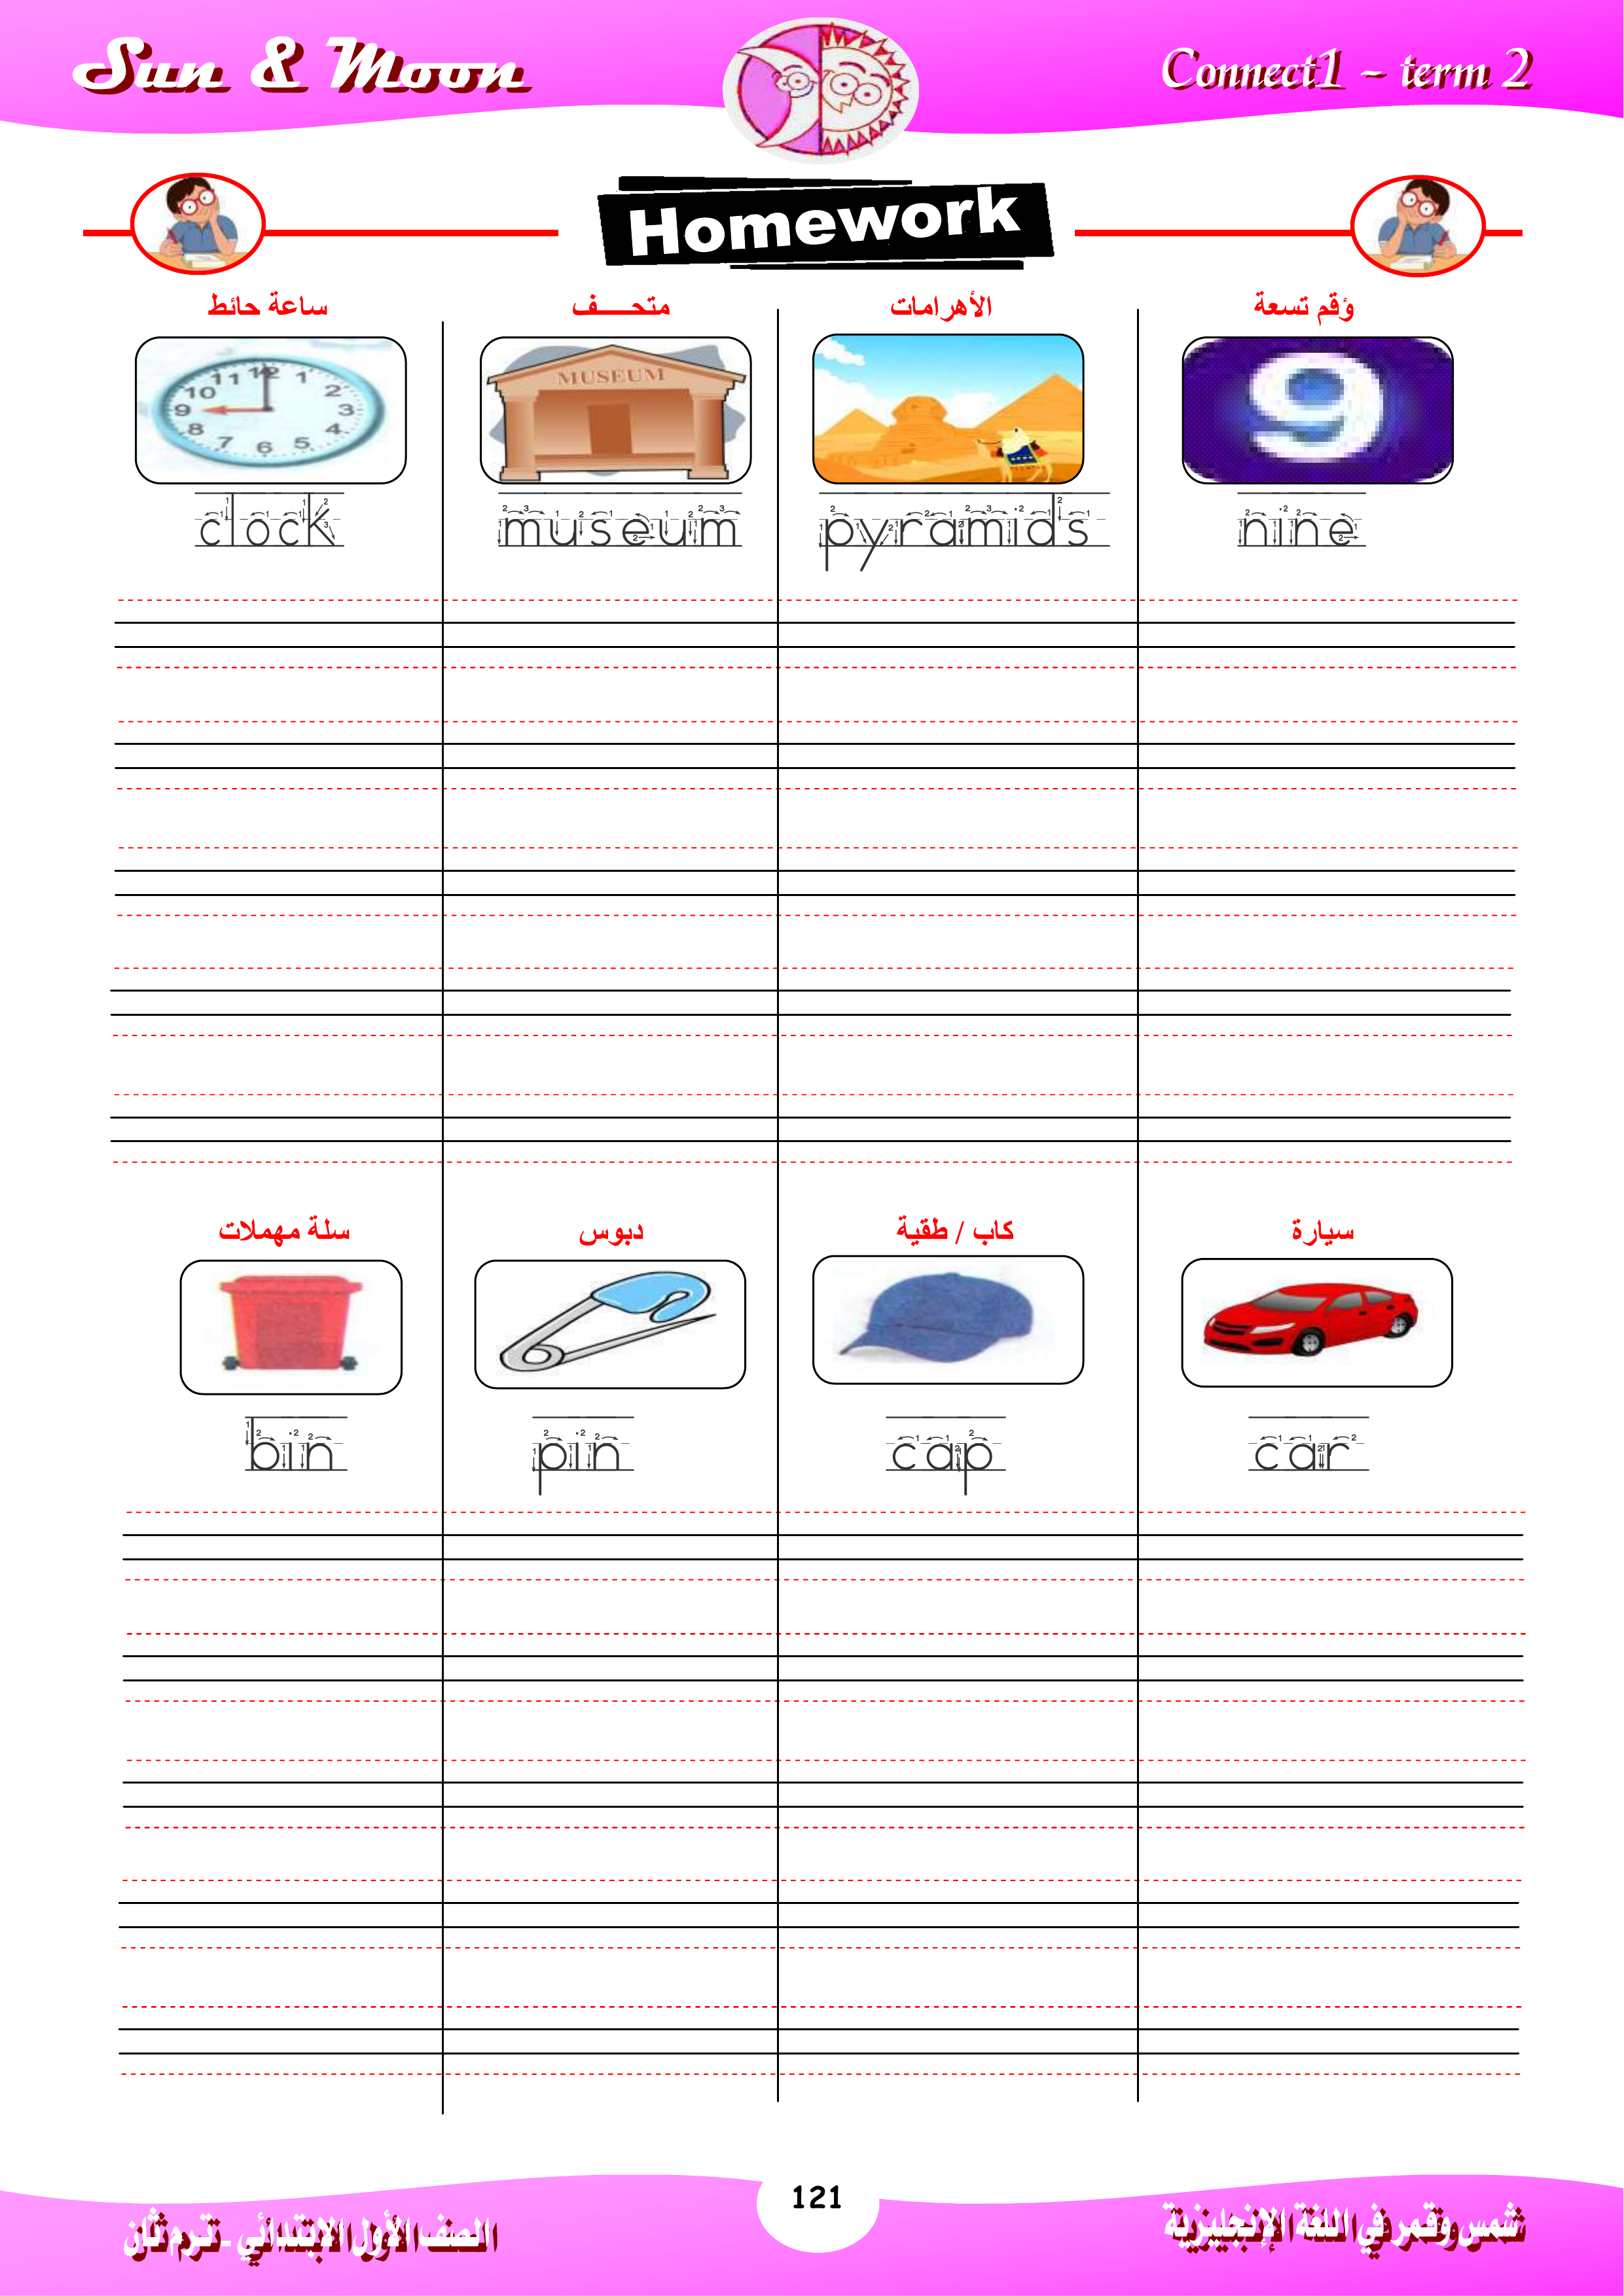 Sun & Moon
Connect1 – term 2
Homework
ساعة حائط
متحـــــف
الأهرامات
ؤقم تسعة
11 12 1
10 2
9 3
8 4
7 6 5
MUSEUM
9
clock
museum
pyramids
nine
سلة مهملات
دبوس
كاب / طقية
سيارة
bin
pin
cap
car
121
الصف الأول الابتدائي - ترم ثان
شمس وقمر في اللغة الإنجليزية